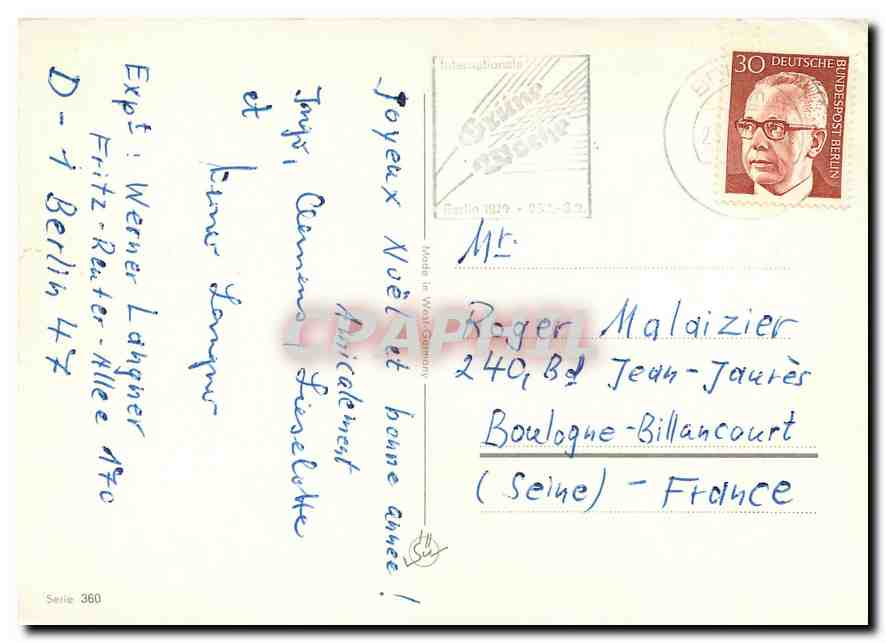 Joyeux Noël et bonne année !
Amicalement
Clemens, Lieselotte
et Werner Langner
Expt: Werner Langner
Fritz-Reuter-Allee 170
D-1 Berlin 47
Internationale
Grüne
Woche
Berlin
30 DEUTSCHE
BUNDESPOST BERLIN
Mr.
Roger Malaizier
240, Bd Jean-Jaurès
Boulogne-Billancourt
(Seine) - France
Made in West-Germany
Serie 360
CPAPHIL